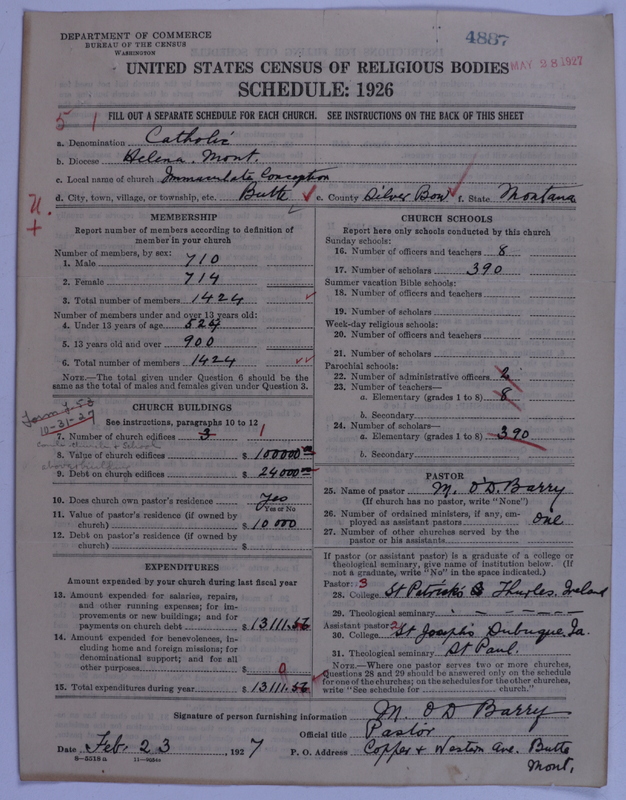 DEPARTMENT OF COMMERCE
BUREAU OF THE CENSUS
WASHINGTON
4887
MAY 28 1927
UNITED STATES CENSUS OF RELIGIOUS BODIES
SCHEDULE: 1926
5 1
FILL OUT A SEPARATE SCHEDULE FOR EACH CHURCH. SEE INSTRUCTIONS ON THE BACK OF THIS SHEET
a. Denomination Catholic
b. Diocese Helena, Mont.
c. Local name of church Immaculate Conception
d. City, town, village, or township, etc. Butte e. County Silver Bow f. State Montana
MEMBERSHIP
Report number of members according to definition of
member in your church
Number of members, by sex:
1. Male 710
2. Female 714
3. Total number of members 1424
Number of members under and over 13 years old:
4. Under 13 years of age 524
5. 13 years old and over 900
6. Total number of members 1424
NOTE.—The total given under Question 6 should be the
same as the total of males and females given under Question 3.
Form J-53
10-31-27
CHURCH BUILDINGS
See instructions, paragraphs 10 to 12
7. Number of church edifices 3 1
8. Value of church edifices $ 100000 00
9. Debt on church edifices $ 24000 00
10. Does church own pastor's residence Yes
Yes or No
11. Value of pastor's residence (if owned by
church) $ 10 000
12. Debt on pastor's residence (if owned by
church) $
EXPENDITURES
Amount expended by your church during last fiscal year
13. Amount expended for salaries, repairs,
and other running expenses; for im-
provements or new buildings; and for
payments on church debt $ 13111.56
14. Amount expended for benevolences, in-
cluding home and foreign missions; for
denominational support; and for all
other purposes $ 0
15. Total expenditures during year $ 13111.56
CHURCH SCHOOLS
Report here only schools conducted by this church
Sunday schools:
16. Number of officers and teachers 8
17. Number of scholars 390
Summer vacation Bible schools:
18. Number of officers and teachers
19. Number of scholars
Week-day religious schools:
20. Number of officers and teachers
21. Number of scholars
Parochial schools:
22. Number of administrative officers 2
23. Number of teachers—
a. Elementary (grades 1 to 8) 8
b. Secondary
24. Number of scholars—
a. Elementary (grades 1 to 8) 390
b. Secondary
PASTOR
25. Name of pastor M. O'D. Barry
(If church has no pastor, write "None")
26. Number of ordained ministers, if any, em-
ployed as assistant pastors one
27. Number of other churches served by the
pastor or his assistants
If pastor (or assistant pastor) is a graduate of a college or
theological seminary, give name of institution below. (If
not a graduate, write "No" in the space indicated.)
Pastor: 3
28. College St Patrick's Thurles, Ireland
29. Theological seminary
Assistant pastor: 3
30. College St Joseph's Dubuque, Ia.
31. Theological seminary St Paul.
NOTE.—Where one pastor serves two or more churches,
Questions 28 and 29 should be answered only on the schedule
for one of the churches; on the schedules for the other churches,
write "See schedule for church."
Signature of person furnishing information M. O'D Barry
Official title Pastor
Date Feb. 23, 1927 P. O. Address Copper & Western Ave. Butte
Mont.
8-5318 a